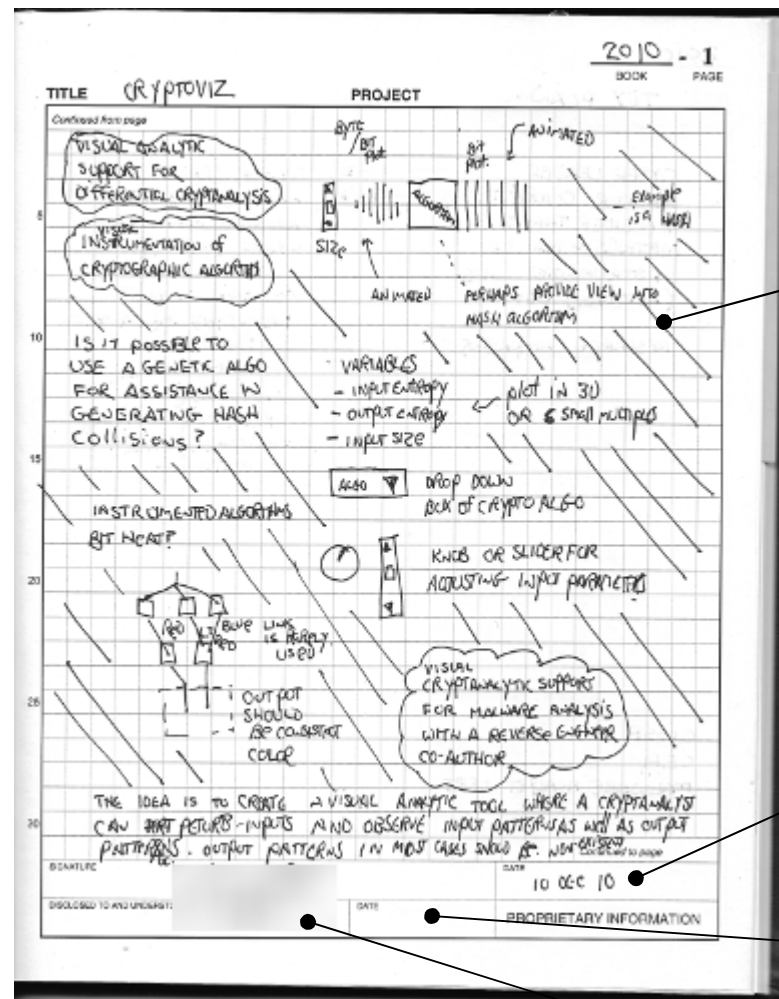 2010 - 1
BOOK PAGE
TITLE CRYPTOVIZ PROJECT
Continued from page
VISUAL ANALYTIC
SUPPORT FOR
DIFFERENTIAL CRYPTANALYSIS
VISUAL
INSTRUMENTATION of
CRYPTOGRAPHIC ALGORITHM
BYTE
/ BIT
PLOT
Bit
Plot.
ANIMATED
ALGORITHM
SIZE
ANIMATED
Example
is a HASH
PERHAPS PROVIDE VIEW INTO
HASH ALGORITHM
5
10
IS IT POSSIBLE TO
USE A GENETIC ALGO
FOR ASSISTANCE IN
GENERATING HASH
Collisions?
VARIABLES
- INPUT ENTROPY
- OUTPUT ENTROPY
- INPUT SIZE
plot IN 3D
OR SMALL MULTIPLES
15
ALGO
DROP DOWN
BOX of CRYPTO ALGO
INSTRUMENTED ALGORITHMS
BIT HEAT?
KNOB OR SLIDER FOR
ADJUSTING INPUT PARAMETERS
20
RED
RED
BLUE LINK
IS RARELY
USED
OUTPUT
SHOULD
BE CONSISTENT
COLOR
25
VISUAL
CRYPTANALYTIC SUPPORT
FOR MALWARE ANALYSIS
WITH A REVERSE ENGINEER
CO-AUTHOR
THE IDEA IS TO CREATE A VISUAL ANALYTIC TOOL WHERE A CRYPTANALYST
30
CAN PETURB INPUTS AND OBSERVE INPUT PATTERNS AS WELL AS OUTPUT
PATTERNS. OUTPUT PATTERNS IN MOST CASES SHOULD BE
Continued to page
SIGNATURE
DATE
10 DEC 10
DISCLOSED TO AND UNDERST
DATE
PROPRIETARY INFORMATION